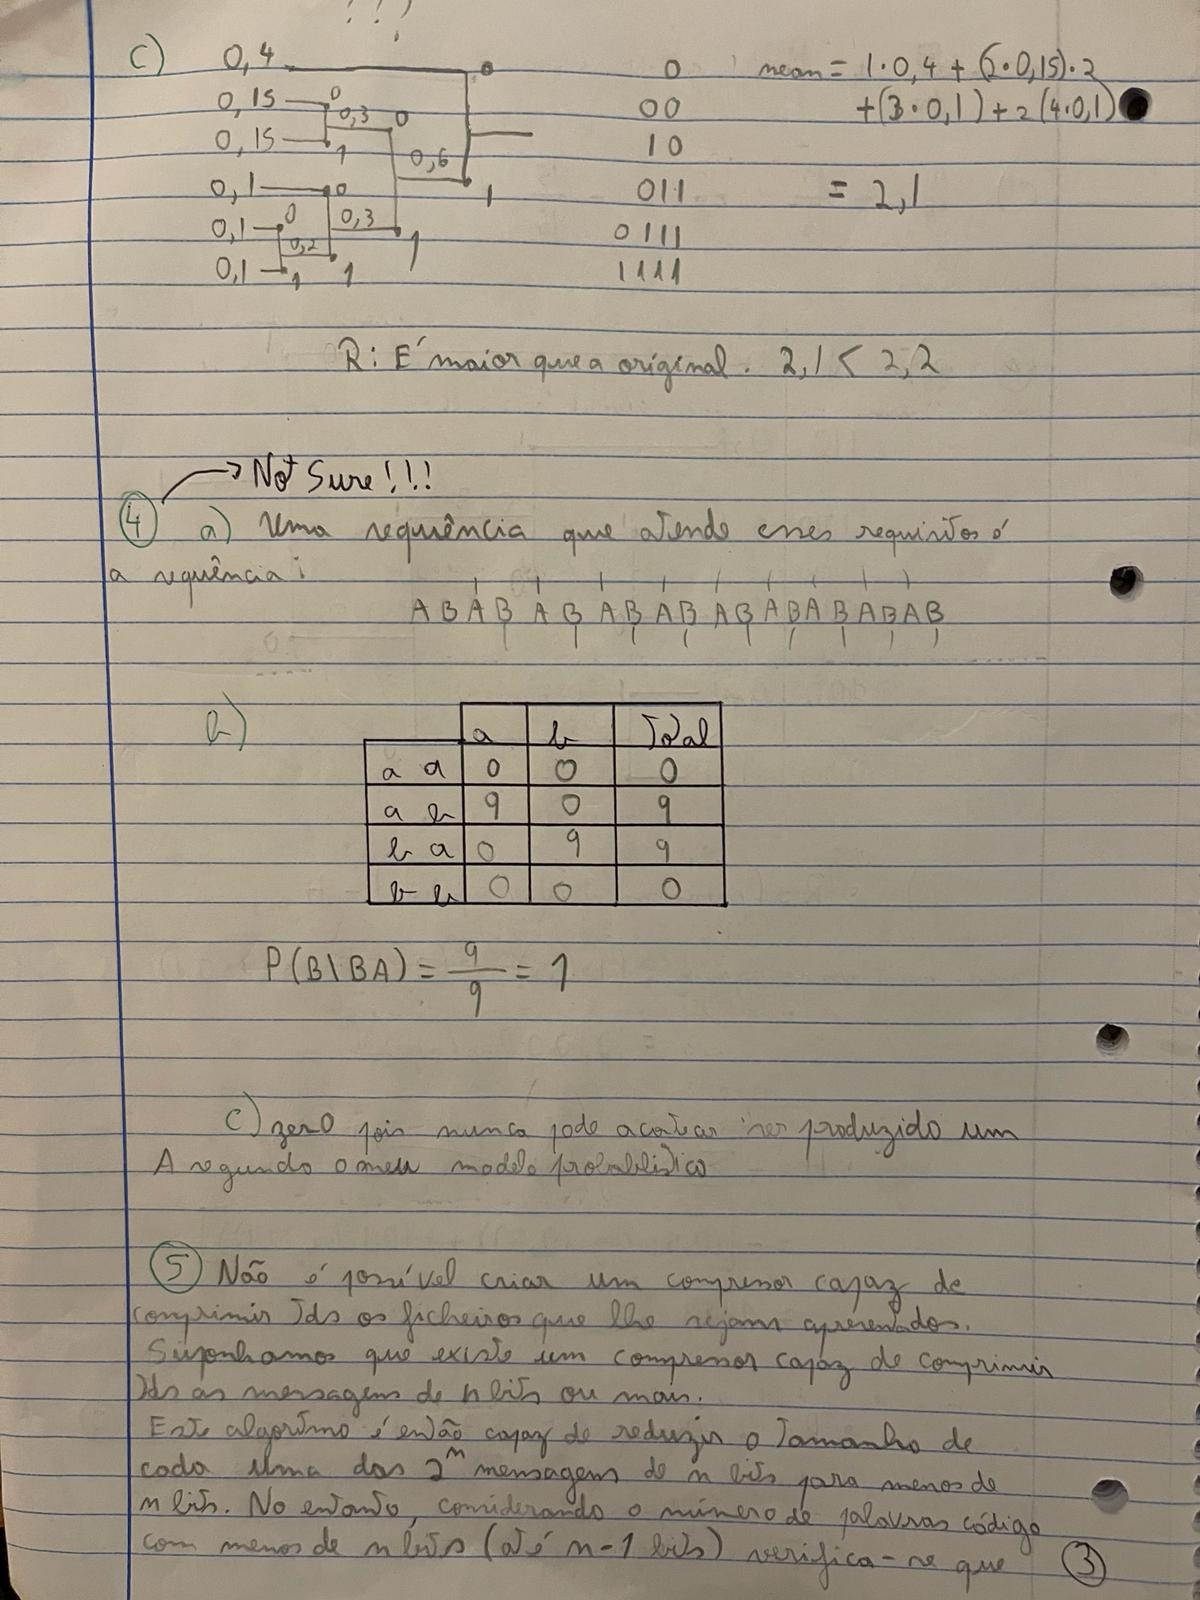 ???
c) 0,4 0 mean = 1·0,4 + (2·0,15)·2
0,15 0 0,3 0 00 +(3·0,1)+2(4·0,1)
0,15 1 0,6 10
0,1 0 1 011 = 2,1
0,1 0 0,3 0111
0,1 0,2 1 1 1 1111
R: É maior que a original. 2,1 < 2,2
→ Not Sure!!!
4 a) Uma sequência que atende esses requisitos é
a sequência:
A B A B A B A B A B A B A B A B A B A B
b)
a b Total
a a 0 0 0
a b 9 0 9
b a 0 9 9
b b 0 0 0
P(B\BA) = 9/9 = 1
c) zero pois nunca pode acontecer ser produzido um
A segundo o meu modelo probabilístico
5 Não é possível criar um compressor capaz de
comprimir tds os ficheiros que lhe sejam apresentados.
Suponhamos que existe um compressor capaz de comprimir
tds as mensagens de n bits ou mais.
Este algoritmo é então capaz de reduzir o tamanho de
cada uma das 2^n mensagens de n bits para menos de
n bits. No entanto, considerando o número de palavras código
com menos de n bits (até n-1 bits) verifica-se que 3